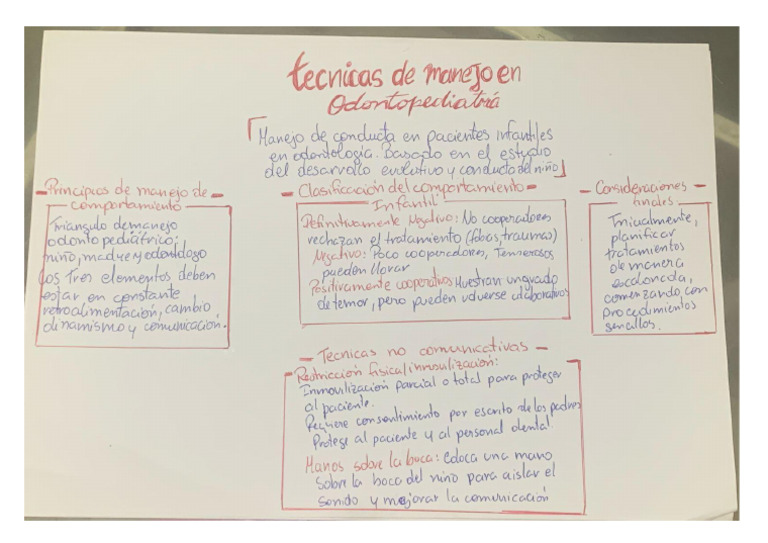 tecnicas de manejo en
Odontopediatria
Manejo de conducta en pacientes infantiles
en odontología. Basado en el estudio
del desarrollo evolutivo y conducta del niño
- Principios de manejo de -
comportamiento
Triangulo de manejo
odonto pediatrico:
niño, madre y odontologo
los tres elementos deben
estar en constante
retroalimentación, cambio
dinamismo y comunicación.
- Clasificación del comportamiento -
Infantil
Definitivamente Negativo: No cooperadores
rechazan el tratamiento (fobias, traumas)
Negativo: Poco cooperadores, Temerosos
pueden llorar
Positivamente cooperativos Muestran un grado
de temor, pero pueden volverse colaborativos
- Consideraciones -
finales
Inicialmente,
planificar
tratamientos
de manera
escalonada,
comenzando con
procedimientos
sencillos.
- Tecnicas no comunicativas -
Restricción fisica/inmovilización:
Inmovilización parcial o total para proteger
al paciente.
Requiere consentimiento por escrito de los padres
Protege al paciente y al personal dental
Manos sobre la boca: Coloca una mano
sobre la boca del niño para aislar el
sonido y mejorar la comunicación